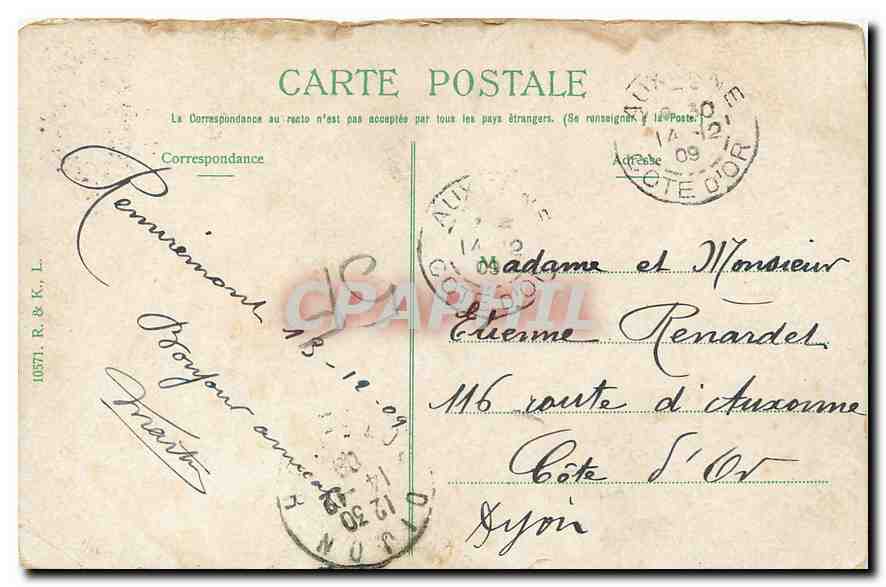 CARTE POSTALE
La Correspondance au recto n'est pas acceptée par tous les pays étrangers. (Se renseigner à la Poste)
Correspondance
Adresse
AUXONNE
14 -12
09
COTE D'OR
Remiremont 13-12-09
Bonjour amical
Martin
AUX NE
14 12
09
COTE D'OR
M
Madame et Monsieur
Etienne Renardet
116 route d'Auxonne
Côte d'Or
Dyon
DIJON
12 30
14 -12
09
10571. R. & K., L.
CPAPHIL